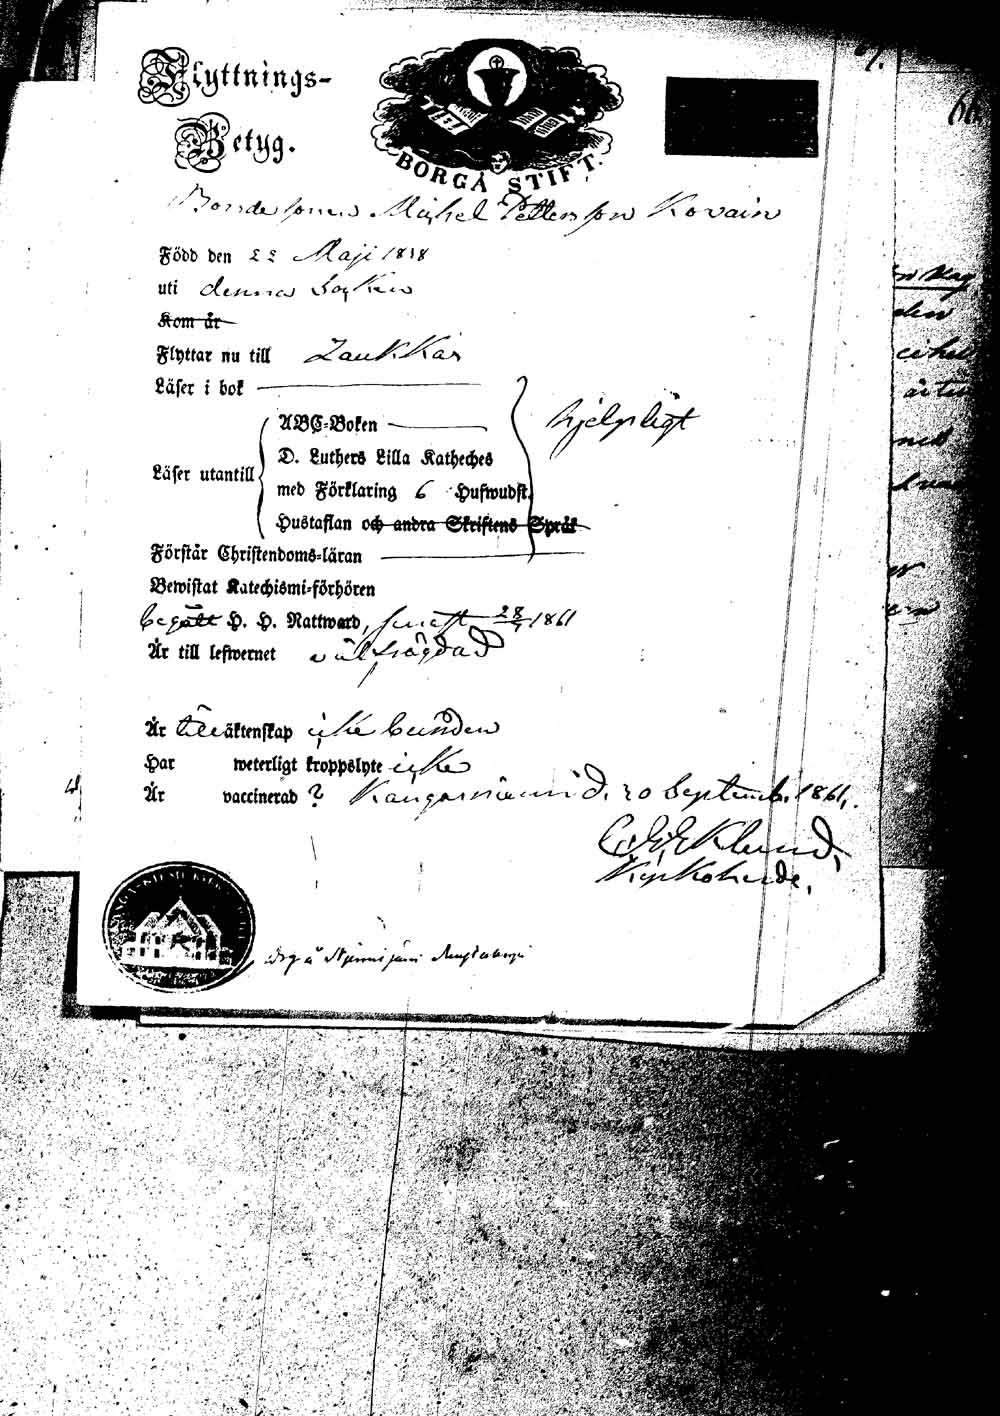 Flyttnings-
Betyg.
BORGÅ STIFT.
Bondesonen Michel Pettersson Kovain
Född den 22 Maji 1838
uti denna Socken
Kom år
Flyttar nu till Laukkas
Läser i bok
hjelpligt
ABC-Boken
Läser utantill
D. Luthers Lilla Katheches
med Förklaring 6 Hufwudst.
Hustaflan och andra Skriftens Språk
Förstår Christendoms-läran
Bewistat Katechismi-förhören
begått H. H. Nattward, senast 28/7 1861
Är till lefwernet välfrägdad
Är till äktenskap icke bunden
Har weterligt kroppslyte icke
Är vaccinerad ? Kangasniemi d. 20 Septemb. 1861.
Eklund,
Kyrkoherde.